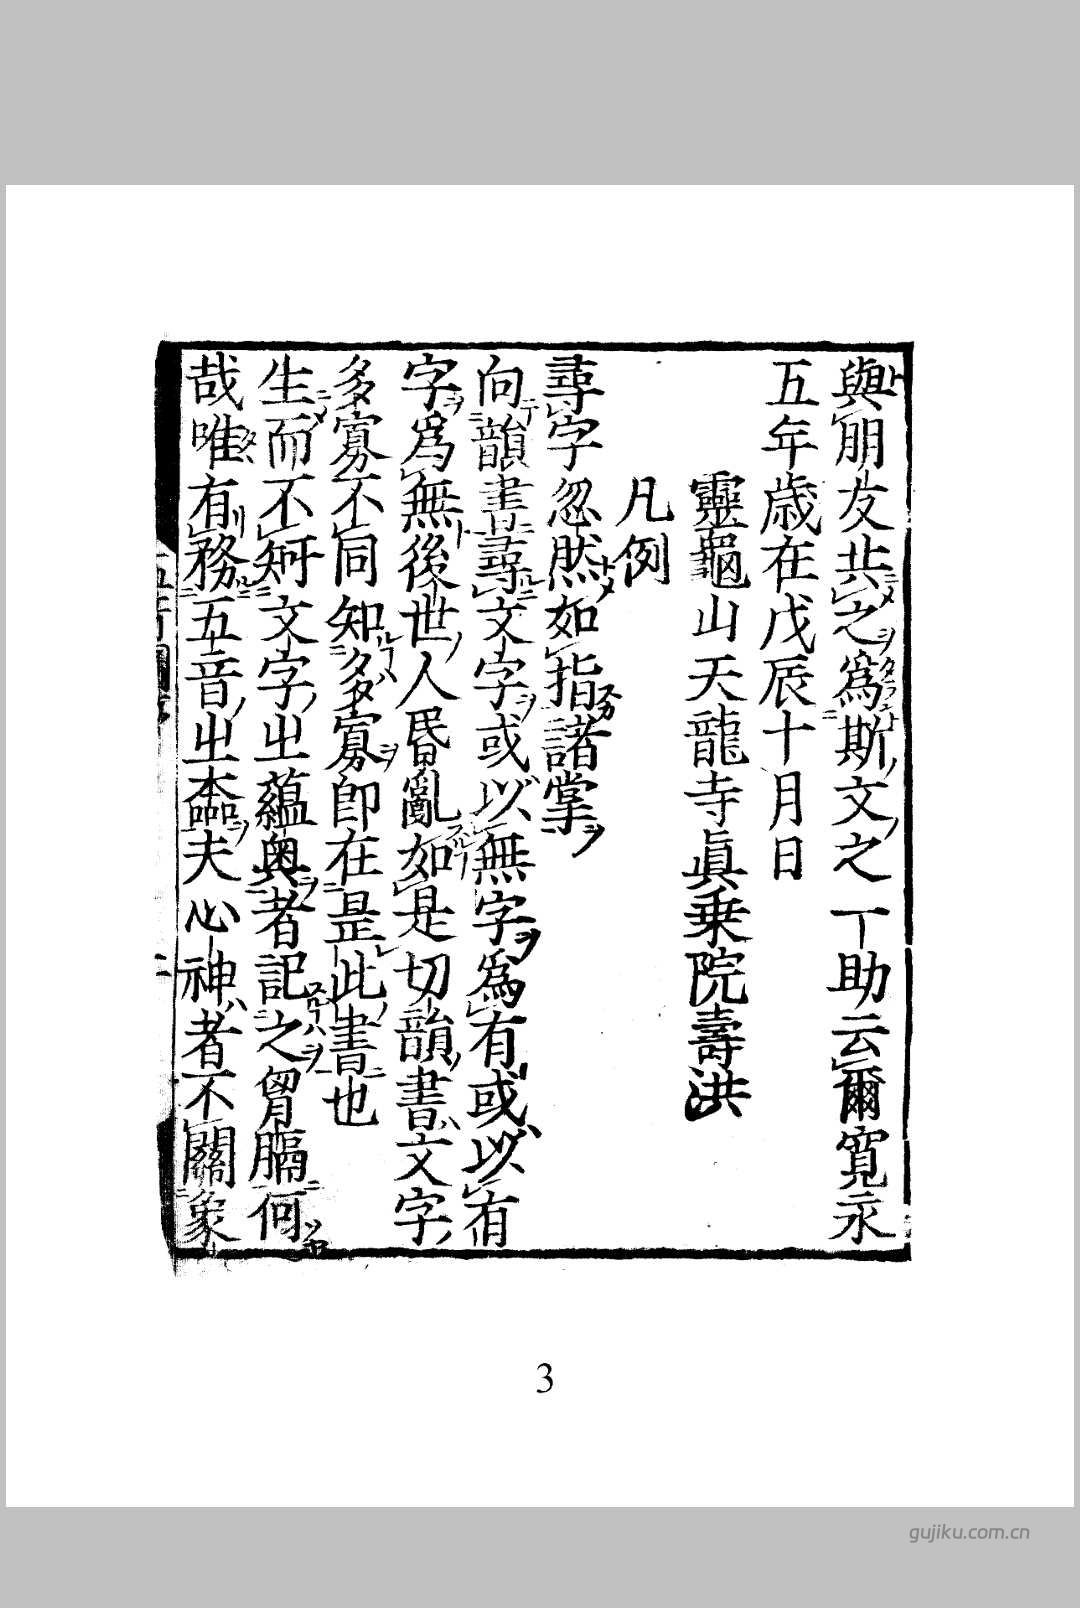 與朋友共之爲斯文之一丁助云爾寛永
五年歳在戊辰十月日
靈龜山天龍寺眞乗院壽洪
凡例
尋字忽然如指諸掌
向韻書尋文字或以無字爲有或以有
字爲無後世人昏亂如是切韻書文字
多寡不同知多寡即在是此書也
生而不知文字出蘊奥者記之胷膈何
哉唯有務五音出夲夫心神者不關象
3
gujiku.com.cn